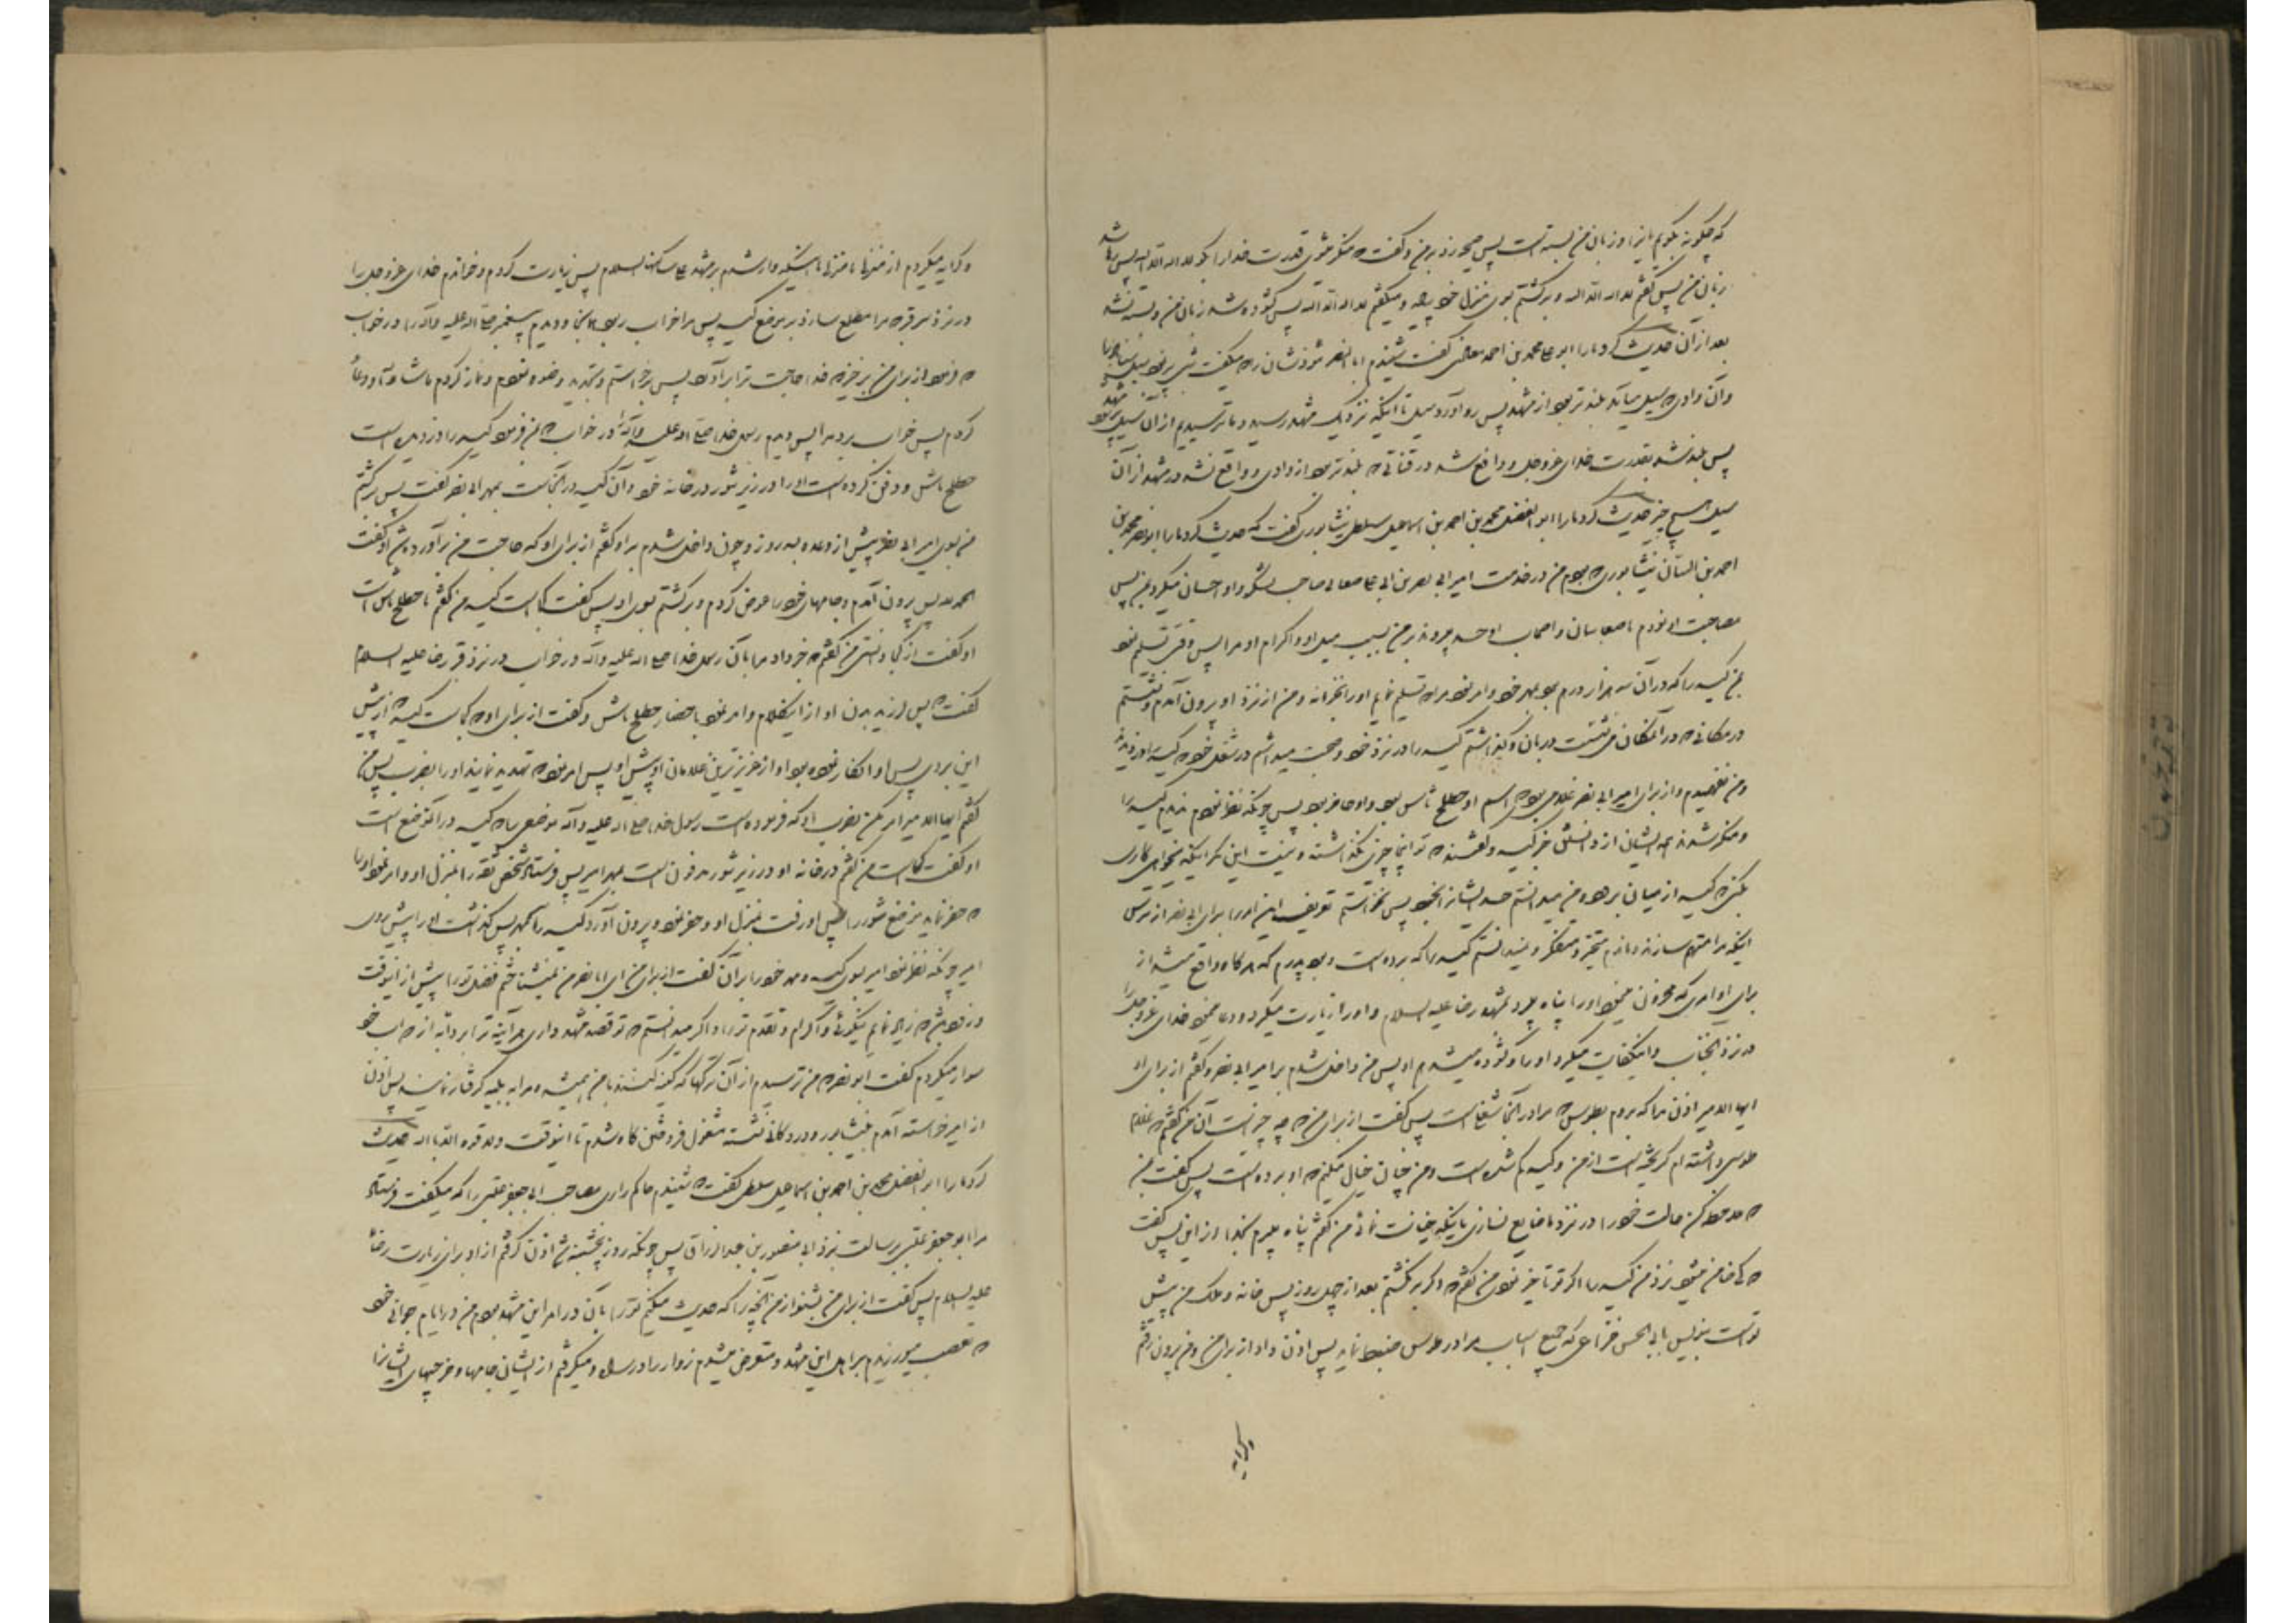 که چگونه بگویم اینرا و زبان من بسته است پس صیحه زد بر من و گفت که منکر میشوی قدرت خدا را بگو لا اله الا الله پس رها شد
زبان من پس گفتم لا اله الا الله و برگشتم بسوی منزل خود پیاده و میگفتم لا اله الا الله پس گشوده شد زبان من و بسته نشد
بعد از آن حدیث کرد ما را ابو علی محمد بن احمد معاذی گفت شنیدم ابا النصر مؤذن که میگفت
وآن وادی که سیل میآید بلندتر بود از مشهد پس رو آورد سیل تا اینکه نزدیک مشهد رسید و ما ترسیدیم از آن سیل
پس بلند شد بقدرت خدای عزوجل و واقع شد در قناتی که بلندتر بود از وادی و واقع نشد در مشهد از آن
سیل هیچ چیز حدیث کرد ما را ابو الفضل محمد بن احمد بن اسماعیل سلیطی نیشابوری گفت که حدیث کرد ما را ابو نصر محمد بن
احمد بن السنان نیشابوری که بودم من در خدمت امیر ابی نصر بن ابی علی صغانی صاحب لشگر و او احسان میکرد بمن پس
مصاحبت او نمودم تا صغانیان و اصحاب او حسد میبردند بر من بسبب میل او و اکرام او مرا پس وقتی تسلیم نمود
بمن کیسه را که در آن سه هزار درم بود بمهر خود و امر نمود مرا که تسلیم نمایم او را بخزانه و من از نزد او بیرون آمدم و نشستم
در مکانی که در آنمکان می نشست دربان و گذاشتم کیسه را در نزد خود و صحبت میداشتم در شغلی خود که کیسه او دزدیدند
ومن نفهمیدم و از برای امیر ابی نصر غلامی بود که اسم او خطلخ تاش بود و او حاضر بود پس چونکه نظر نمودم ندیدم کیسه را
و منکر شدند همه ایشان از دانستن خبر کیسه و گفتند که تو اینجا چیزی نگذاشته و نیست این مگر اینکه میخواهی کاری
بکنی که کیسه از میان برده و من میدانستم حسد ایشانرا بخود پس نخواستم تعریف این امر را برای ابی نصر از ترس
اینکه مرا متهم سازند و ماندم متحیر و متفکر و نمیدانستم کیسه را که برده است و بود پدرم که هر گاه واقع میشد از
برای او امری که محزون مینمود او را پناه میبرد بمشهد رضا علیه السلام و او را زیارت میکرد و دعا مینمود خدای عزوجل را
در نزد آنجناب و آن کفایت میکرد او را و گشوده میشد هم او پس من داخل شدم بر امیر ابی نصر و گفتم از برای او
ایها الامیر اذن ده مرا که بروم بطوس که مرا در آنجا شغلی است پس گفت از برای من که چه چیز است آن من گفتم که غلام
طوسی داشته ام گریخته است از من و کیسه گم شده است و من چنان خیال میکنم که او برده است پس گفت بمن
که ملاحظه کن حالت خود را در نزد ما ضایع نسازی باینکه خیانت نمائی من گفتم پناه میبرم بخدا از این پس گفت
که کی ضامن میشود نزد من کیسه را اگر تو تأخیر نمودی من گفتم که اگر برنگشتم بعد از چهل روز پس خانه و ملک من پیش
تو است بنویس بابی الحسن خزاعی که جمیع اسباب مرا در طوس ضبط نماید پس اذن داد از برای من و من بیرون رفتم
وکرایه
وکرایه میکردم از منزلی تا منزلی تا اینکه وارد شدم بر مشهد علی ساکنها السلام پس زیارت کردم و خواندم خدای عزوجل را
در نزد سر قبر که مرا مطلع سازد بر موضع کیسه پس مرا خواب ربود در آنجا و دیدم پیغمبر صلی الله علیه وآله را در خواب
که فرمود از برای من برخیز که خدا حاجت ترا برآورد پس برخواستم و تجدید وضوء نمودم و نماز کردم ما شاء الله و دعا
کردم پس خواب برد مرا پس دیدم رسول خدا صلی الله علیه وآله را در خواب که بمن فرمود کیسه را دزدیده است
خطلخ تاش و دفن کرده است او را در زیر تنور در خانه خود و آن کیسه در آنجاست بمهر ابی نصر گفت پس برگشتم
من بسوی امیر ابی نصر پیش از وعده بسه روز و چون داخل شدم بر او گفتم از برای او که حاجت من برآورده شد او گفت
الحمد لله پس بیرون آمدم و جامهای خود را عوض کردم و برگشتم بسوی او پس گفت کجا است کیسه من گفتم با خطلخ تاش است
او گفت از کجا دانستی من گفتم که خبر داد مرا بآن رسول خدا صلی الله علیه وآله در خواب در نزد قبر رضا علیه السلام
گفت که پس لرزید بدن او از اینکلام و امر نمود باحضار خطلخ تاش و گفت از برای او که کجا است کیسه که از پیش
این بردی پس او انکار نمود و بود او از عزیزترین غلامان او پیش او پس امر نمود که تهدید نمایند او را بضرب پس من
گفتم ایها الامیر امر مکن بضرب او که فرموده است رسول خدا صلی الله علیه وآله موضعی را که کیسه در آنموضع است
او گفت کجا است من گفتم در خانه او در زیر تنور مدفون است بمهر امیر پس فرستاد شخص ثقه را بمنزل او و امر نمود او را
که حفر نماید موضع تنور را پس او رفت بمنزل او و حفر نمود و بیرون آورد کیسه را بمهر پس گذاشت او را پیش روی
امیر چونکه نظر نمود امیر بسوی کیسه و مهر خود را بر آن گفت از برای من ای ابا نصر من نمیشناختم فضل تو را پیش از اینوقت
و زود باشد که زیاد نمایم نیکوئی و اکرام و تقدم ترا و اگر میدانستم که تو قصد مشهد داری هر آینه ترا بر دابه از دواب خود
سوار میکردم گفت ابو نصر که من ترسیدم از آن ترکها که کینه کنند با من میشد که مرا به بلیه گرفتار نمایند پس اذن
از امیر خواسته آمدم بنیشابور و در دکانی نشسته مشغول فروختن کاه شدم تا اینوقت ولا قوة الا بالله حدیث
کرد ما را ابو الفضل محمد بن احمد بن اسماعیل سلیطی گفت که شنیدم حاکم رازی مصاحب ابی جعفر عتبی را که میگفت فرستاد
مرا ابو جعفر عتبی برسالت بنزد ابی منصور بن عبد الرزاق پس چونکه روز پنجشنبه شد اذن گرفتم از او برای زیارت رضا
علیه السلام پس گفت از برای من بشنو از من آنچه را که حدیث میکنم تو را بآن در امر این مشهد بودم من در ایام جوانی خود
که تعصب میورزیدم بر اهل این مشهد و متعرض میشدم زوار را در راه و میگرفتم از ایشان جامها و خرجیهای ایشانرا